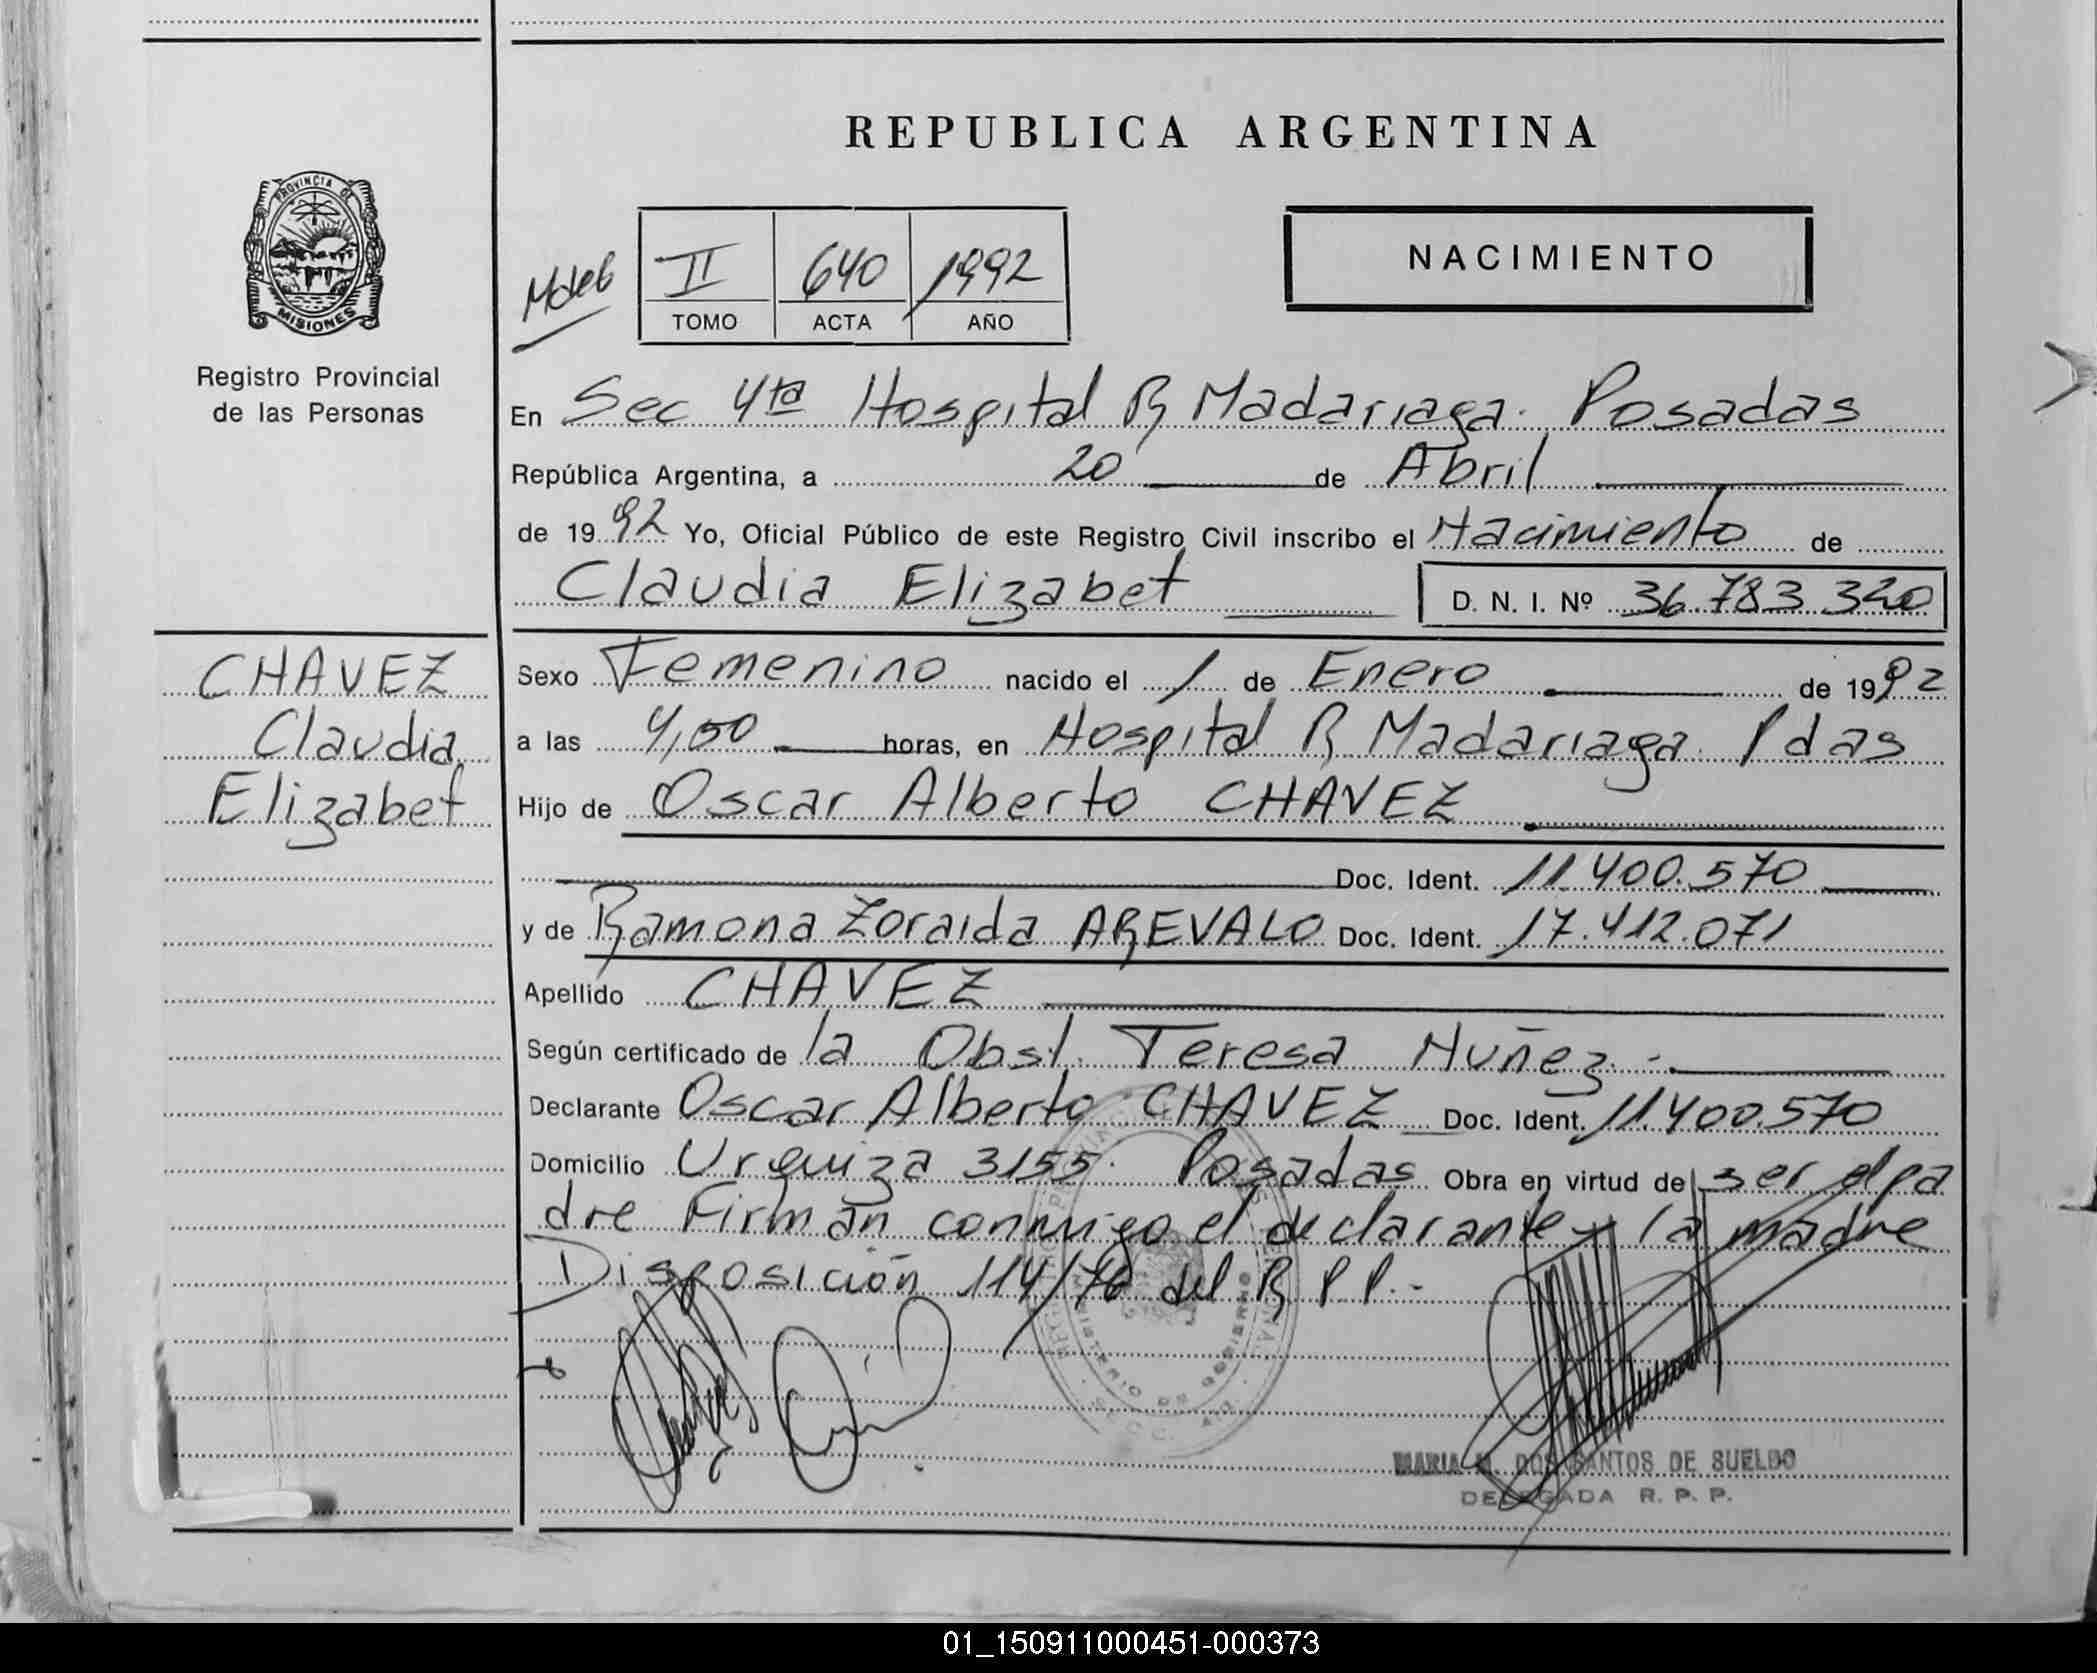 REPUBLICA ARGENTINA
PROVINCIA DE
MISIONES
Registro Provincial
de las Personas
II 640 1992
TOMO ACTA AÑO
NACIMIENTO
En Sec 4ta Hospital R Madariaga. Posadas
República Argentina, a 20 de Abril
de 1992 Yo, Oficial Público de este Registro Civil inscribo el Nacimiento de
Claudia Elizabet D. N. I. Nº 36.783.320
CHAVEZ
Claudia
Elizabet
Sexo Femenino nacido el 1 de Enero de 1992
a las 4,50 horas, en Hospital R Madariaga. Pdas
Hijo de Oscar Alberto CHAVEZ
Doc. Ident. 11.400.570
y de Ramona Zoraida AREVALO Doc. Ident. 17.412.071
Apellido CHAVEZ
Según certificado de la Obst. Teresa Nuñez.-
Declarante Oscar Alberto CHAVEZ Doc. Ident. 11.400.570
Domicilio Urquiza 3155. Posadas Obra en virtud de ser el pa
dre Firman conmigo el declarante y la madre
Disposición 114/76 del R P P.-
MINISTERIO DE GOBIERNO
MARIA M. DOS SANTOS DE SUELDO
DELEGADA R. P. P.
01_150911000451-000373